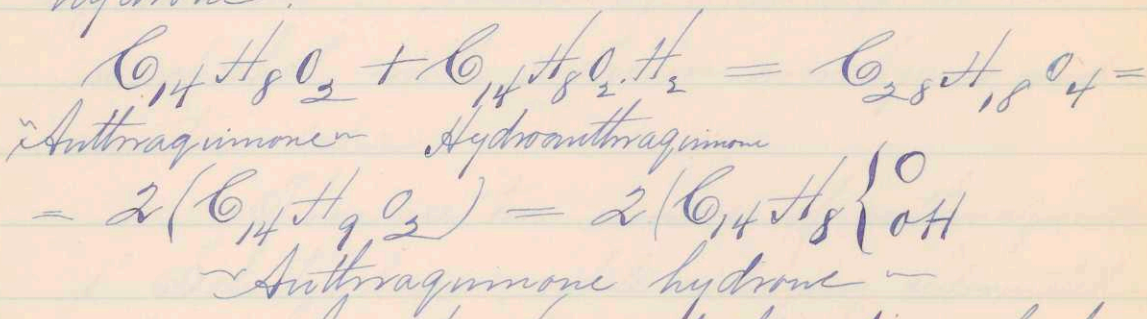 hydrone.
C₁₄H₈O₂ + C₁₄H₈O₂.H₂ = C₂₈H₁₈O₄ =
"Anthraquinone" Hydroanthraquinone
= 2(C₁₄H₉O₂) = 2(C₁₄H₈{O OH
~ Anthraquinone hydrone ~